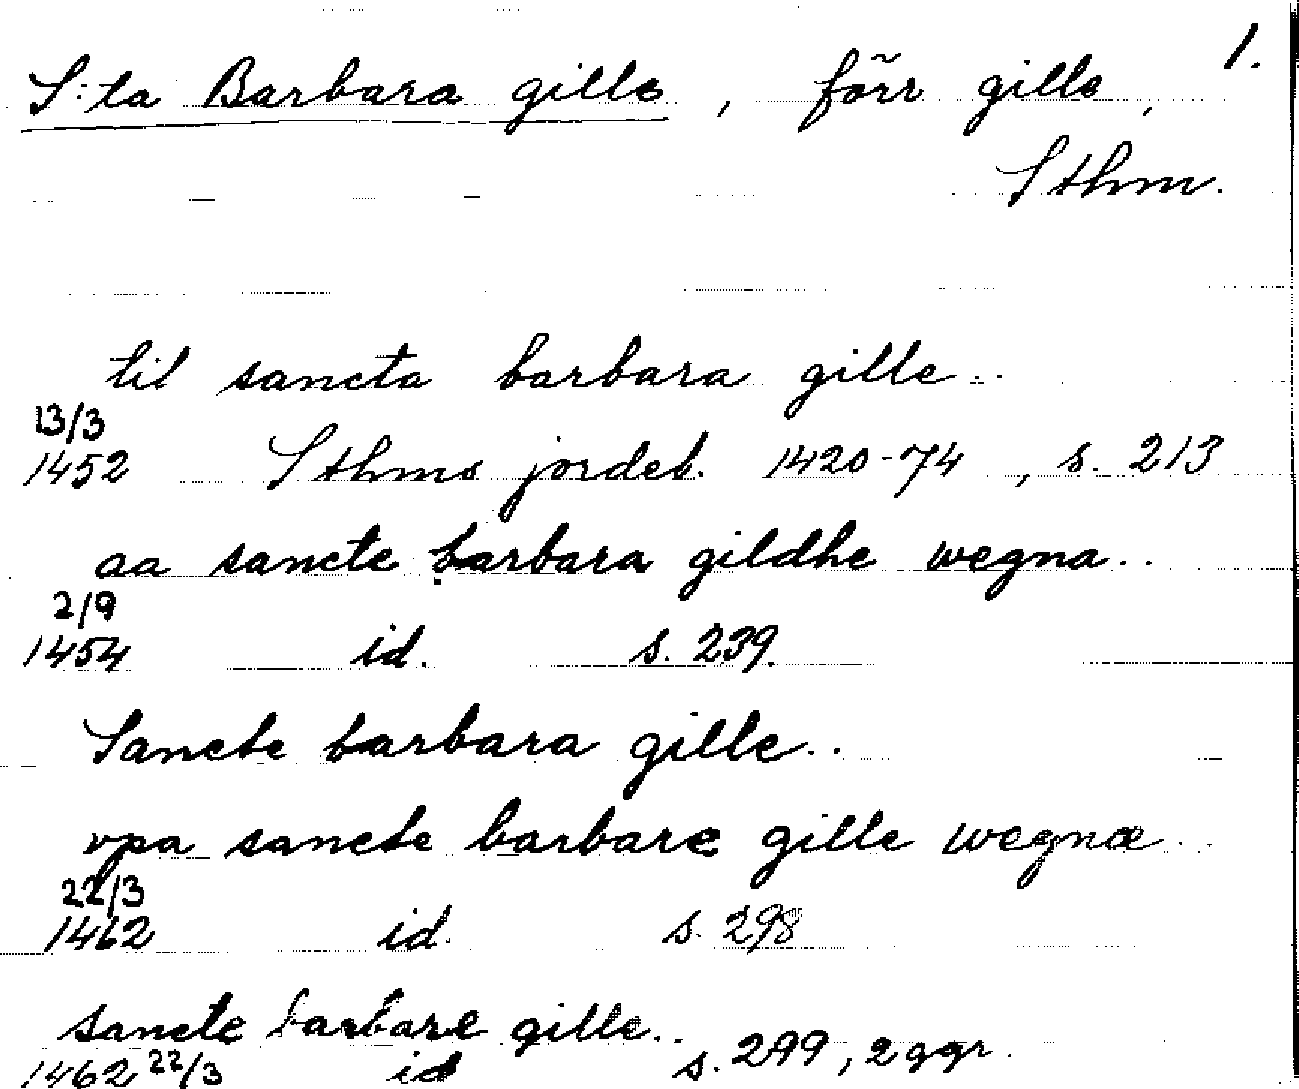 1.
S:ta Barbara gille, förr gille,
Sthm.
til sancta barbara gille..
13/3
1452 Sthms jordeb. 1420-74, s. 213
aa sancte barbara gildhe wegna..
2/9
1454 id. s. 239.
Sancte barbara gille..
vpa sancte barbare gille wegnæ..
22/3
1462 id. s. 298
sancte barbare gille..
1462 22/3 id s. 299, 2 ggr.